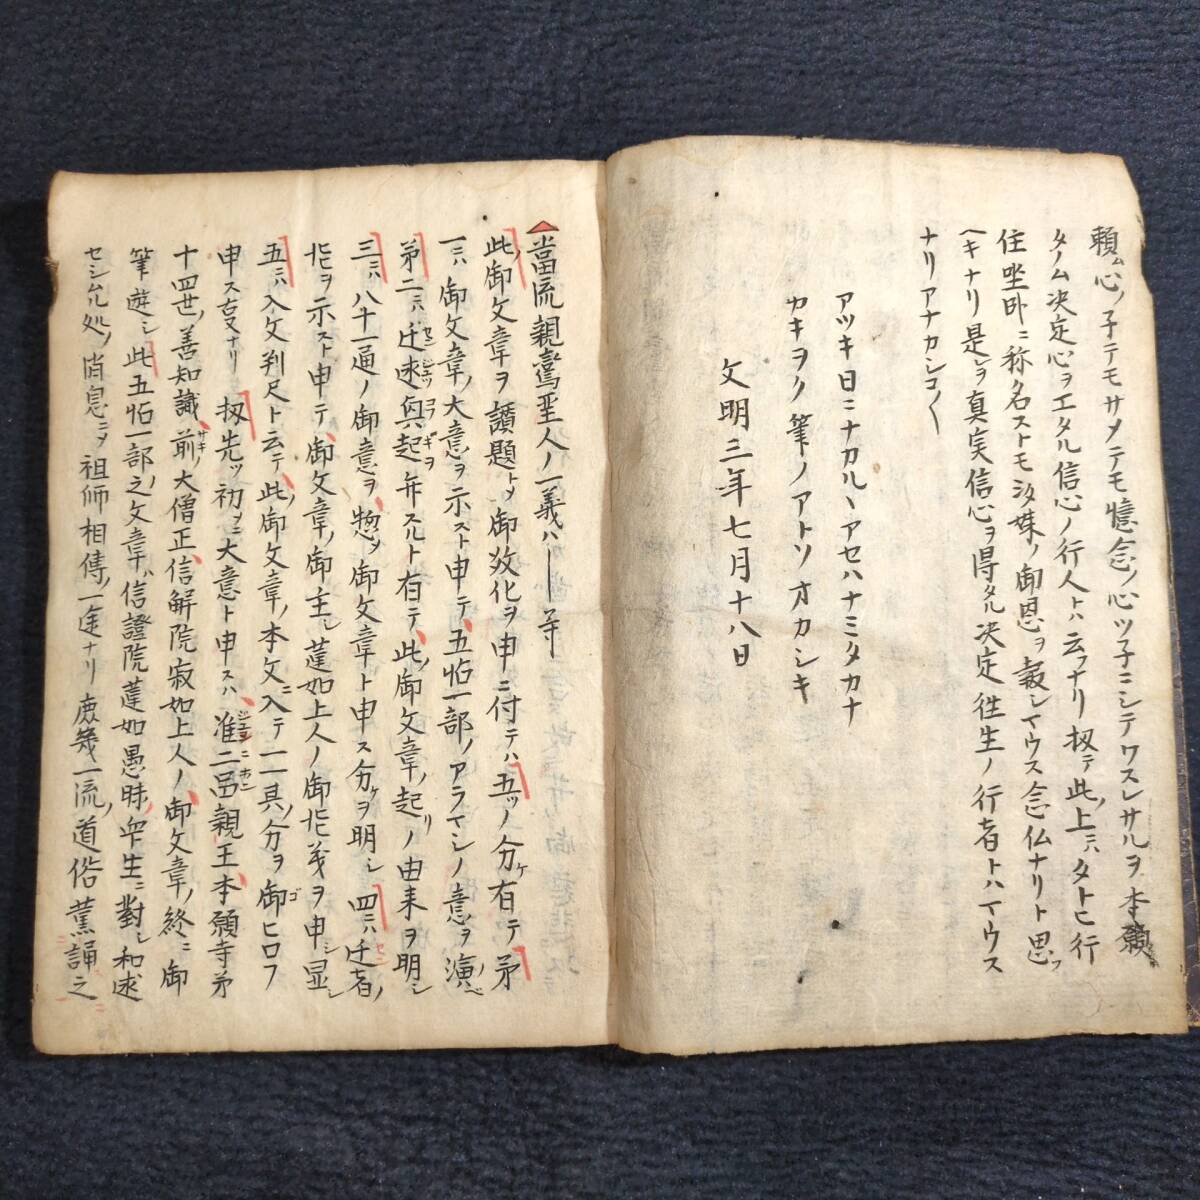 頼ム心ノ子テモサメテモ憶念ノ心ツ子ニシテワスレサルヲ本願
タノム决定心ヲエタル信心ノ行人トハ云フナリ扨テ此ノ上ニハタトヒ行
住坐卧ニ称名ストモ弥ノ御恩ヲ報シマウス念仏ナリト思フ
ヘキナリ是ヲ真実信心ヲ得タル决定往生ノ行者トハマウス
ナリアナカシコ〱
アツキ日ニナカルヽアセハナミタカナ
カキヲク筆ノアトソオカシキ
文明三年七月十八日
當流親鸞聖人ノ一義ハ――等
此御文章ヲ讃題トメ御教化ヲ申ニ付テハ五ツノ分ケ有テ㐧
一ニハ御文章ノ大意ヲ示スト申テ五帖一部ノアラマシノ意ヲ演ベ
㐧二ニハ述興起ヲ弁スルト有テ此ノ御文章ノ起リノ由来ヲ明シ
三ニハ八十一通ノ御意ヲ惣メ御文章ト申ス分ケヲ明シ四ニハ者ノ
ヲ示スト申テ御文章ノ御主シ蓮如上人ノ御義ヲ申シ显シ
五ニハ入文判尺ト云テ此ノ御文章ノ本文ニ入テ一一其ノ分ヲ御ヒロフ
申ス叓ナリ扨先ツ初ニ大意ト申スハ准二品親王本願寺㐧
十四世ノ善知識前ノ大僧正信解院寂如上人ノ御文章ノ終ニ御
筆遊シ此五帖一部之文章ハ信證院蓮如愚昧ノ衆生ニ對シ和
セシムル処ノ消息ニメ祖師相傳ノ一途ナリ庶幾一流ノ道俗薫誦之